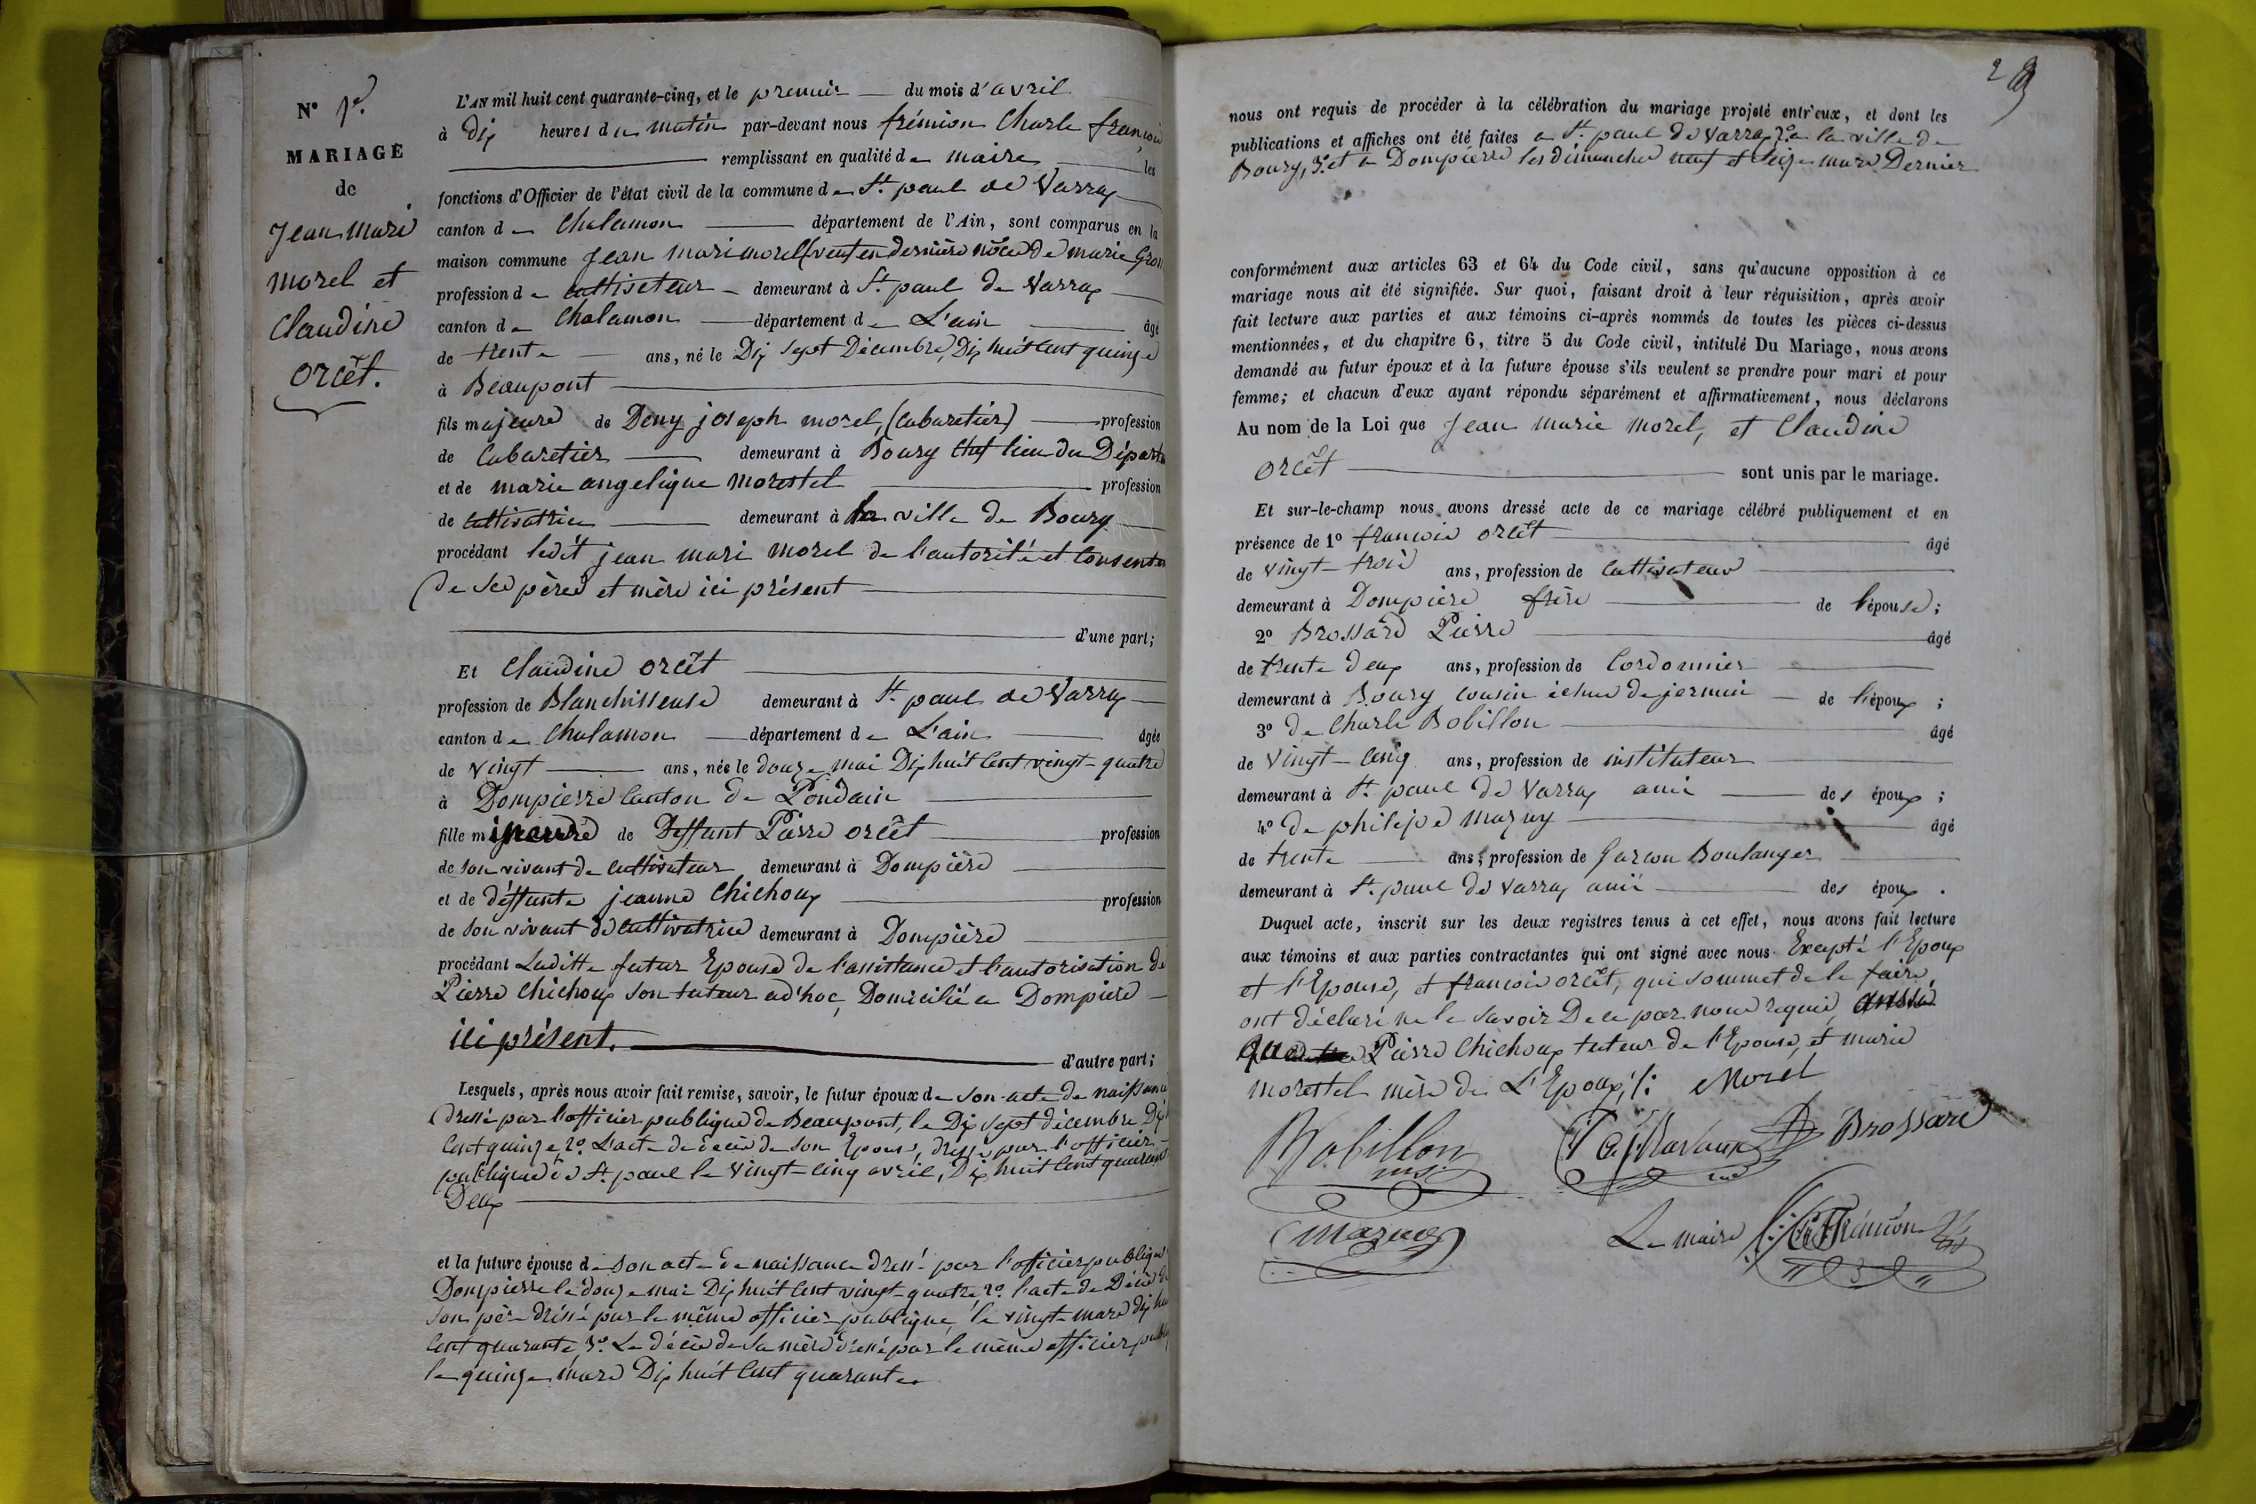 N° 1er
MARIAGE
de
Jean mari
morel et
Claudine
orcêt.
L'AN mil huit cent quarante-cinq, et le premier du mois d'avril
à dix heures du matin par-devant nous frémion Charle françois
remplissant en qualité de maire les
fonctions d'Officier de l'état civil de la commune de St. paul de Varrax
canton de Chalamon département de l'Ain, sont comparus en la
maison commune Jean mari morel (veuf en dernière nôce de marie Gron
profession de cultiveteur demeurant à St. paul de Varrax
canton de Chalamon département de L'ain âgé
de trente ans, né le Dix sept Décembre, Dix huit Cent quinze
à Beaupont
fils majeure de Deny joseph morel, (Cabaretier) profession
de Cabaretier demeurant à Bourg Chef lieu du Départ
et de marie angelique morestel profession
de Cultivatrice demeurant à la ville de Bourg
procédant ledit jean mari morel de l'autorité et Consent
de ses pères et mère ici présent
d'une part;
Et Claudine orcêt
profession de Blanchisseuse demeurant à St. paul de Varrax
canton de Chalamon département de L'ain âgée
de vingt ans, née le douze mai Dix huit Cent vingt-quatre
à Dompierre Canton de Pondain
fille mineure de Deffunt Pierre orcêt profession
de son vivant de Cultivateur demeurant à Dompière
et de déffunte jeanne Chichoux profession
de son vivant de Cultivatrice demeurant à Dompière
procédant Laditte futur Epouse de l'assistance et l'autorisation de
Pierre Chichoux son tuteur ad'hoc, Domicilié a Dompiere
ici présent.
d'autre part;
Lesquels, après nous avoir fait remise, savoir, le futur époux de son acte de naissance
dressé par l'officier publique de Beaupont, le Dix sept décembre Dix
Cent quinze, 2°. L'acte de décès de son Epouse, dressé par l'officier
publique de St. paul le vingt-cinq avril, Dix huit Cent quarant
Deux
et la future épouse de son acte de naissance dressé par l'officier publique
Dompierre le douze mai Dix huit Cent vingt-quatre, 2°. l'acte de Décès de
son père dréssé par le même officier publique, le vingt mars dix hu
Cent quarante, 3°. Le décès de sa mère dréssé par le même officier publ
le quinze mars Dix huit Cent quarante.
nous ont requis de procéder à la célébration du mariage projeté entr'eux, et dont les
publications et affiches ont été faites a St. paul de Varrax, 2°. a la ville de
Bourg, 3°. et a Dompierre les dimanches neuf et Seize mars Dernier
conformément aux articles 63 et 64 du Code civil, sans qu'aucune opposition à ce
mariage nous ait été signifiée. Sur quoi, faisant droit à leur réquisition, après avoir
fait lecture aux parties et aux témoins ci-après nommés de toutes les pièces ci-dessus
mentionnées, et du chapitre 6, titre 5 du Code civil, intitulé Du Mariage, nous avons
demandé au futur époux et à la future épouse s'ils veulent se prendre pour mari et pour
femme; et chacun d'eux ayant répondu séparément et affirmativement, nous déclarons
Au nom de la Loi que Jean marie morel, et Claudine
orcêt sont unis par le mariage.
Et sur-le-champ nous avons dressé acte de ce mariage célébré publiquement et en
présence de 1° francois orcêt âgé
de vingt-trois ans, profession de Cultivateur
demeurant à Dompiere frère de l'épouse;
2° Brossard Pierre âgé
de trente deux ans, profession de Cordonnier
demeurant à Bourg cousin de jermin de l'époux;
3° de Charle Bobillon âgé
de vingt-cinq ans, profession de instituteur
demeurant à St. paul de Varrax ami des époux;
4° de philipe mazuy âgé
de trente ans, profession de Garcon Boulanger
demeurant à St. paul de Varrax ami des époux.
Duquel acte, inscrit sur les deux registres tenus à cet effet, nous avons fait lecture
aux témoins et aux parties contractantes qui ont signé avec nous Excepté l'Epoux
et l'Epouse, et francois orcêt, qui sommet de le faire,
ont déclaré ne le savoir De ce par nous requis, aussi
que Pierre Chichoux tuteur de l'Epouse, et marie
morestel mère de L'Epoux ./: Morel
Bobillon Brossard
mazuy Le maire Ch. Frémion